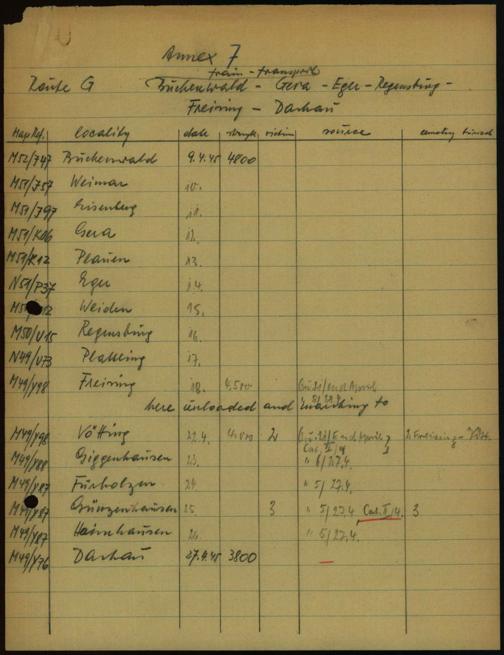 Annex 7
train - transport
Route G Buchenwald - Gera - Eger - Regensburg -
Freising - Dachau
Map Ref. locality date strength victims source cemetery buried
M52/J47 Buchenwald 9.4.45 4800
M51/J57 Weimar 10.
M51/J97 Eisenberg 11.
M51/K06 Gera 12.
M51/K12 Plauen 13.
N51/P37 Eger 14.
Weiden 15.
M50/U15 Regensburg 16.
N49/U73 Plattling 17.
M49/Y98 Freising 18. 4,500 End April
here unloaded and marching to 5/27.4.
M49/Y98 Vötting 22.4. 4,000 2 End April 2 Freising-Vött.
M49/Y88 Giggenhausen 23. " 6/27.4.
M49/Y87 Fürholzen 24 " 5/27.4.
M49/Y87 Günzenhausen 25. 3 " 5/27.4, Cat. II/4. 3
M49/Y87 Haimhausen 26. " 5/27.4.
M49/Y76 Dachau 27.4.45 3800